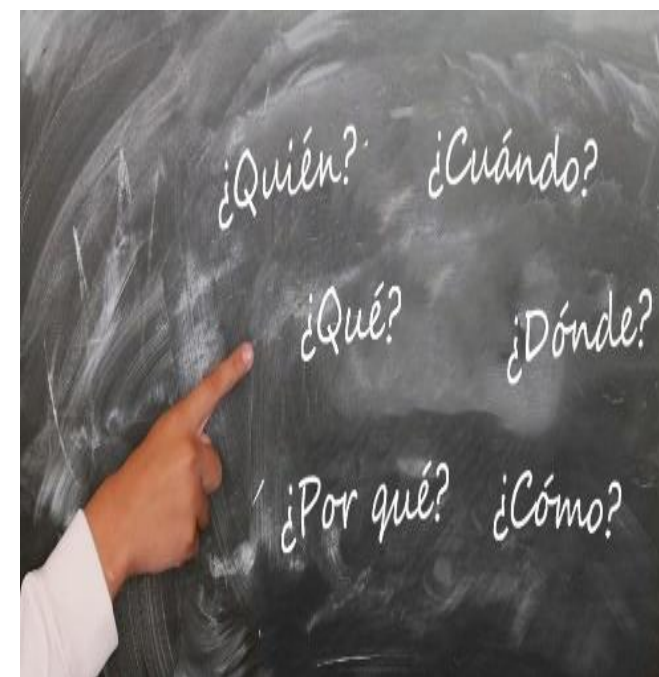 ¿Quién? ¿Cuándo?
¿Qué? ¿Dónde?
¿Por qué? ¿Cómo?